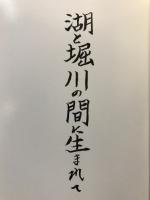 湖と堀川の間に生まれて